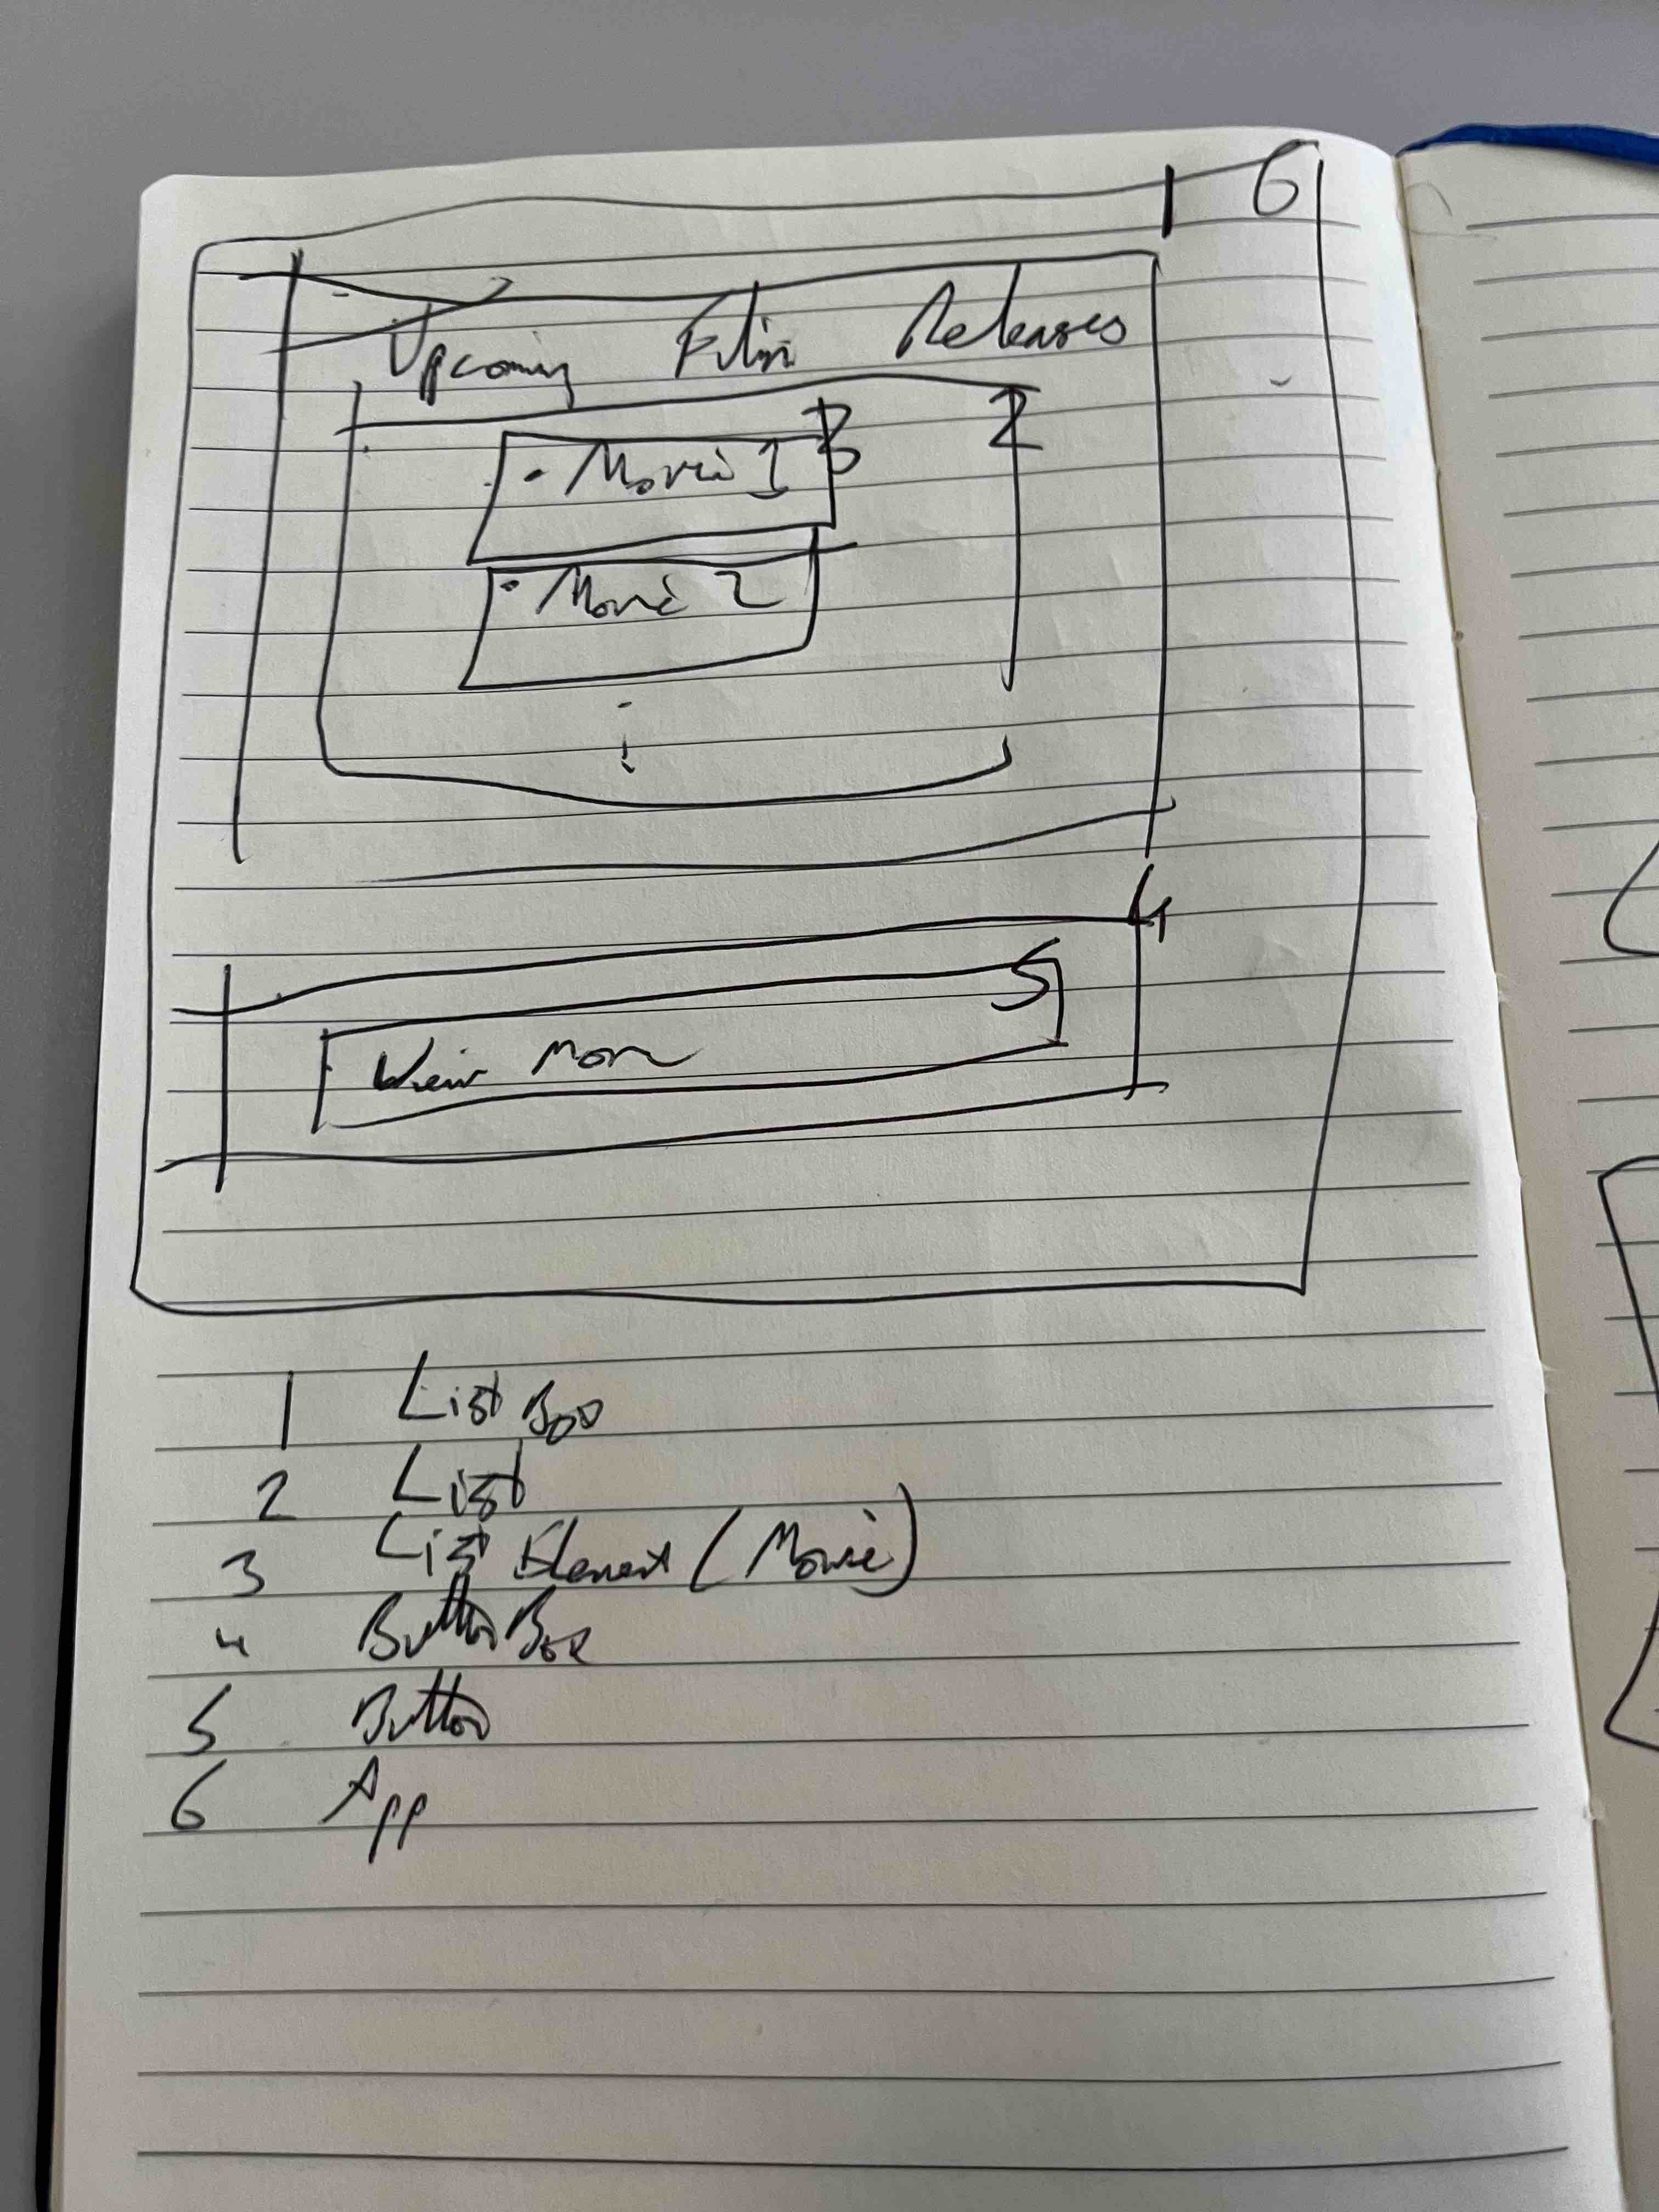 1 6
Upcoming Film Releases
• Movie 1 3 2
• Movie 2
4
5
View More
1 List Box
2 List
3 List Element (Movie)
4 Button Box
5 Button
6 App